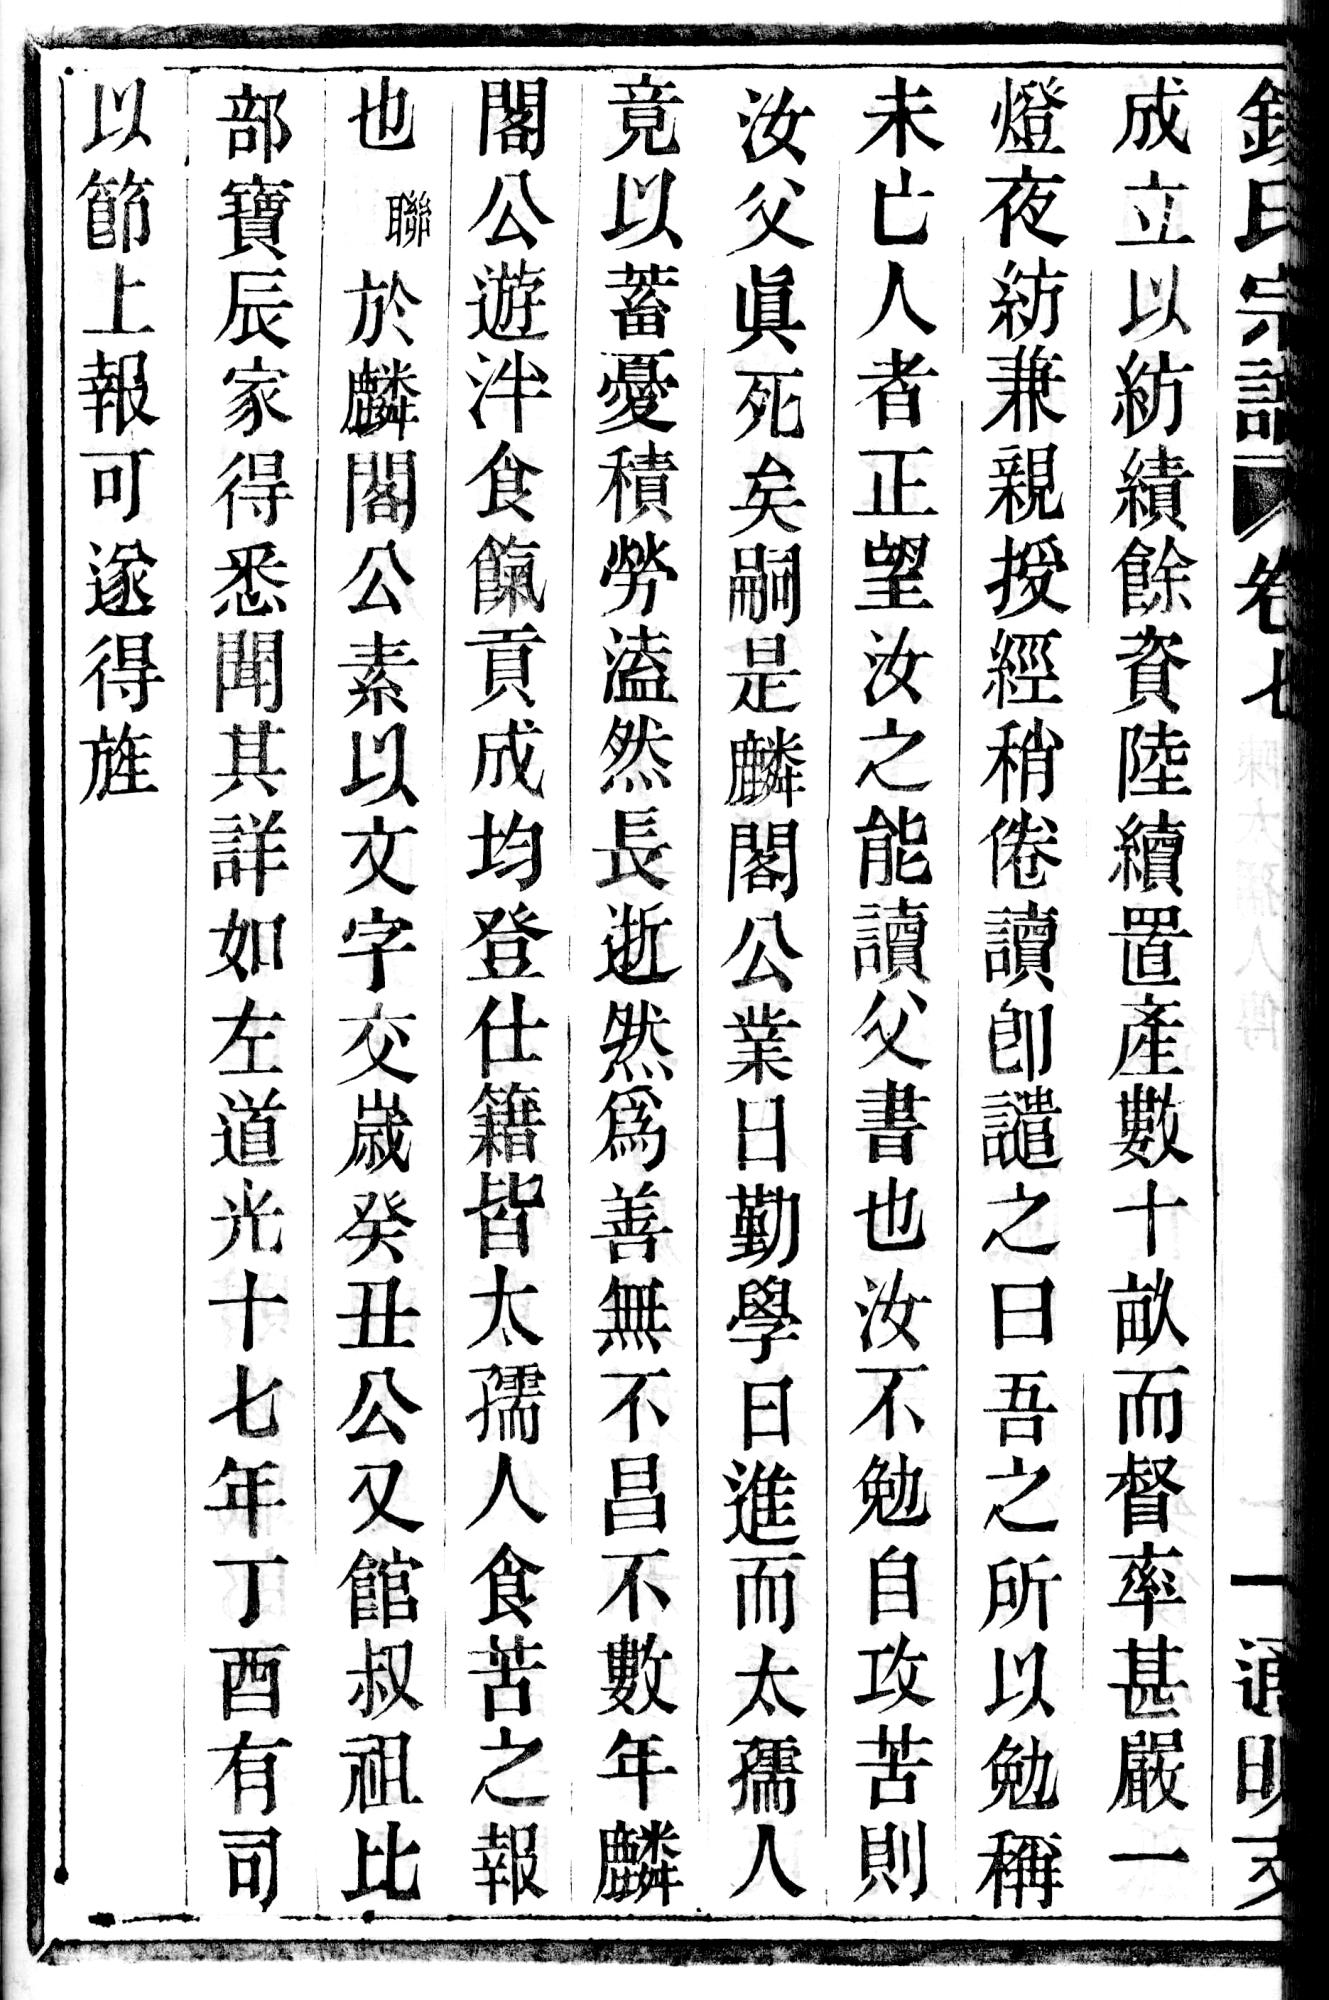 氏宗譜 卷七 一 通明
成立以紡績餘資陸續置產數十畝而督率甚嚴一
燈夜紡兼親授經稍倦讀卽譴之曰吾之所以勉稱
未亡人者正望汝之能讀父書也汝不勉自攻苦則
汝父眞死矣嗣是麟閣公業日勤學日進而太孺人
竟以蓄憂積勞溘然長逝然爲善無不昌不數年麟
閣公遊泮食餼貢成均登仕籍皆太孺人食苦之報
也聯於麟閣公素以文字交歲癸丑公又館叔祖比
部寶辰家得悉聞其詳如左道光十七年丁酉有司
以節上報可遂得旌